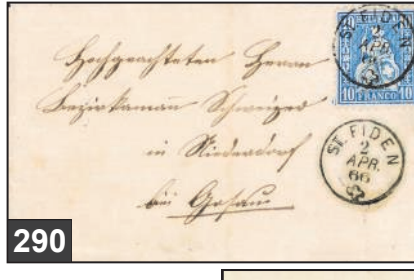 ST. FIDEN
2
APR.
66
10 10
FRANCO
Hochgeachteten Herrn
Bezirksamann Schweizer
in Niederdorf
bei Gossau
ST. FIDEN
2
APR.
66
290